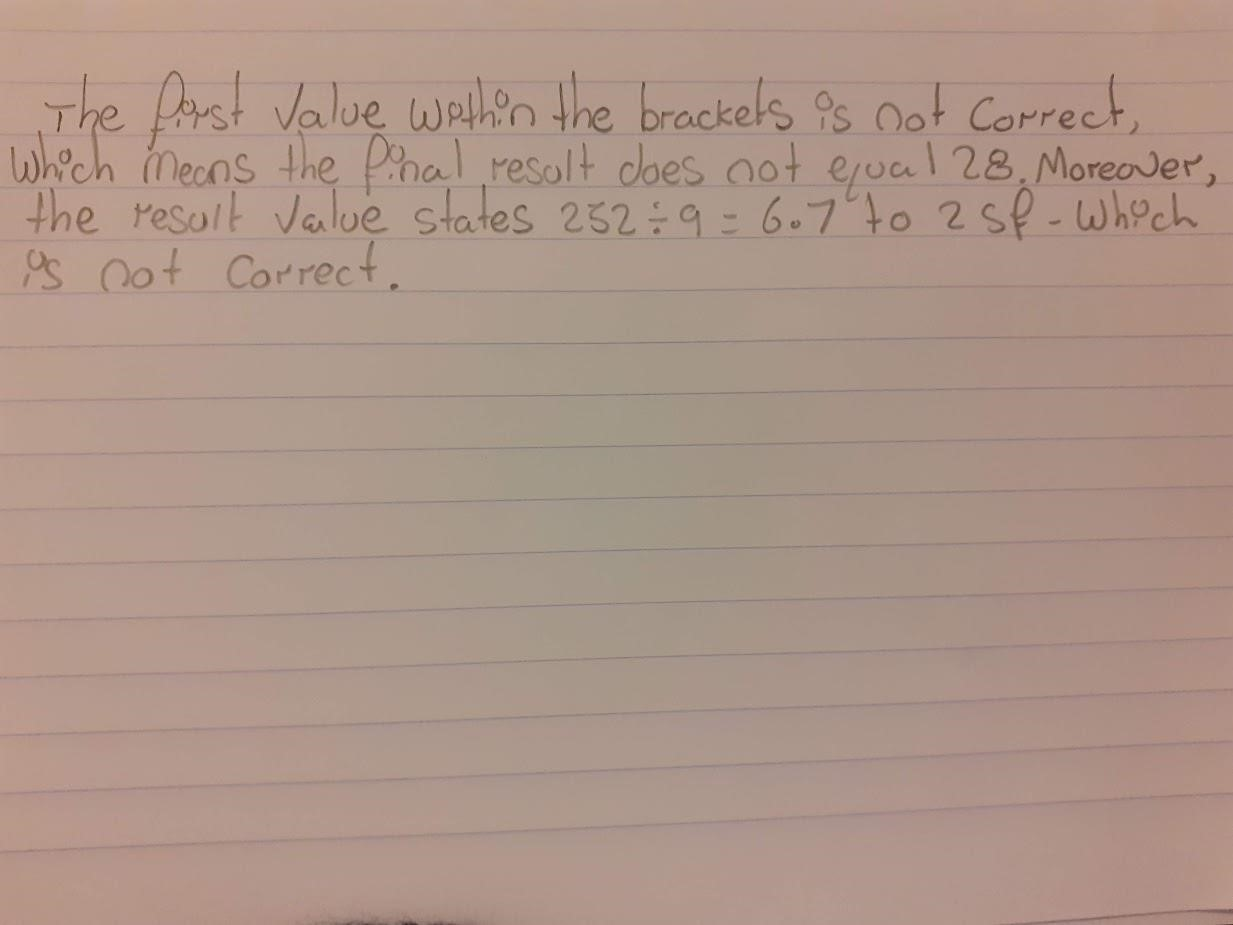 The first value within the brackets is not correct,
which means the final result does not equal 28. Moreover,
the result value states 252 ÷ 9 = 6.7 to 2 sf - which
is not correct.